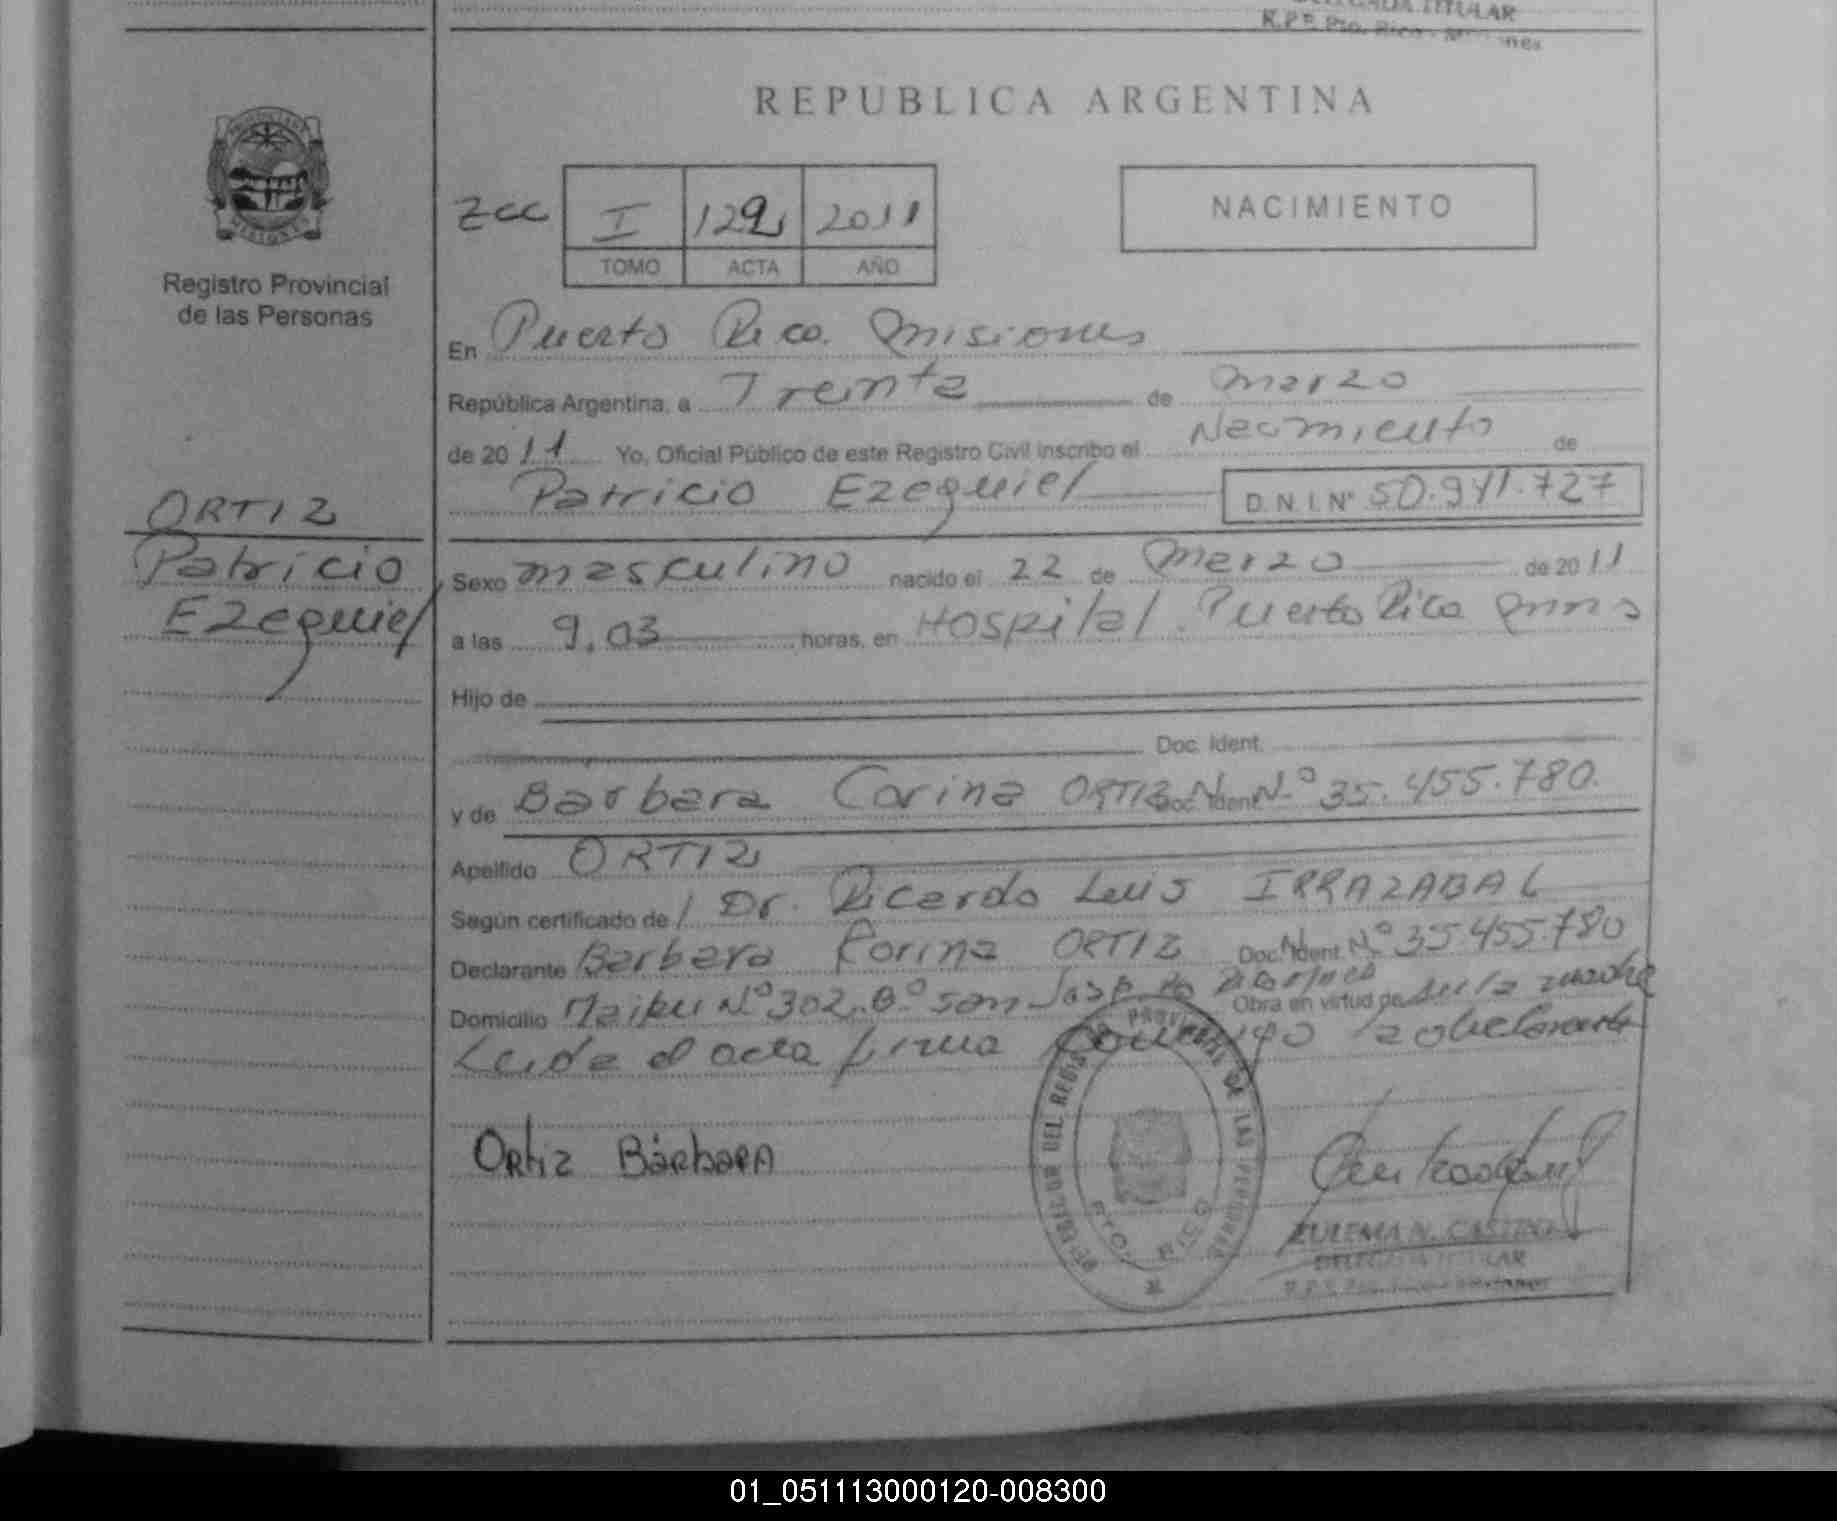 DELEGADA TITULAR
R.P.P. Pto. Rico - Misiones
REPUBLICA ARGENTINA
zcc I 129 2011
TOMO ACTA AÑO
NACIMIENTO
Registro Provincial
de las Personas
En Puerto Rico. Misiones
República Argentina, a Treinta de marzo
de 2011 Yo, Oficial Público de este Registro Civil inscribo el Nacimiento de
Patricio Ezequiel D.N.I. N° 50.941.727
ORTIZ
Patricio
Ezequiel
Sexo masculino nacido el 22 de Marzo de 2011
a las 9,03 horas, en Hospital Puerto Rico Mnes
Hijo de
Doc. Ident.
y de Barbara Corina ORTIZ Doc. Ident. N° 35.455.780.
Apellido ORTIZ
Según certificado de Dr. Ricardo Luis IRRAZABAL
Declarante Barbara Corina ORTIZ Doc. Ident. N° 35.455.780
Domicilio Maipu N° 302 B° San Obra en virtud de ser la madre
Leida el acta firma conmigo la declarante
Ortiz Bárbara
DEL REGISTRO PROVINCIAL DE LAS PERSONAS
PTO. RICO
ZULEMA N. CASTRO
DELEGADA TITULAR
01_051113000120-008300